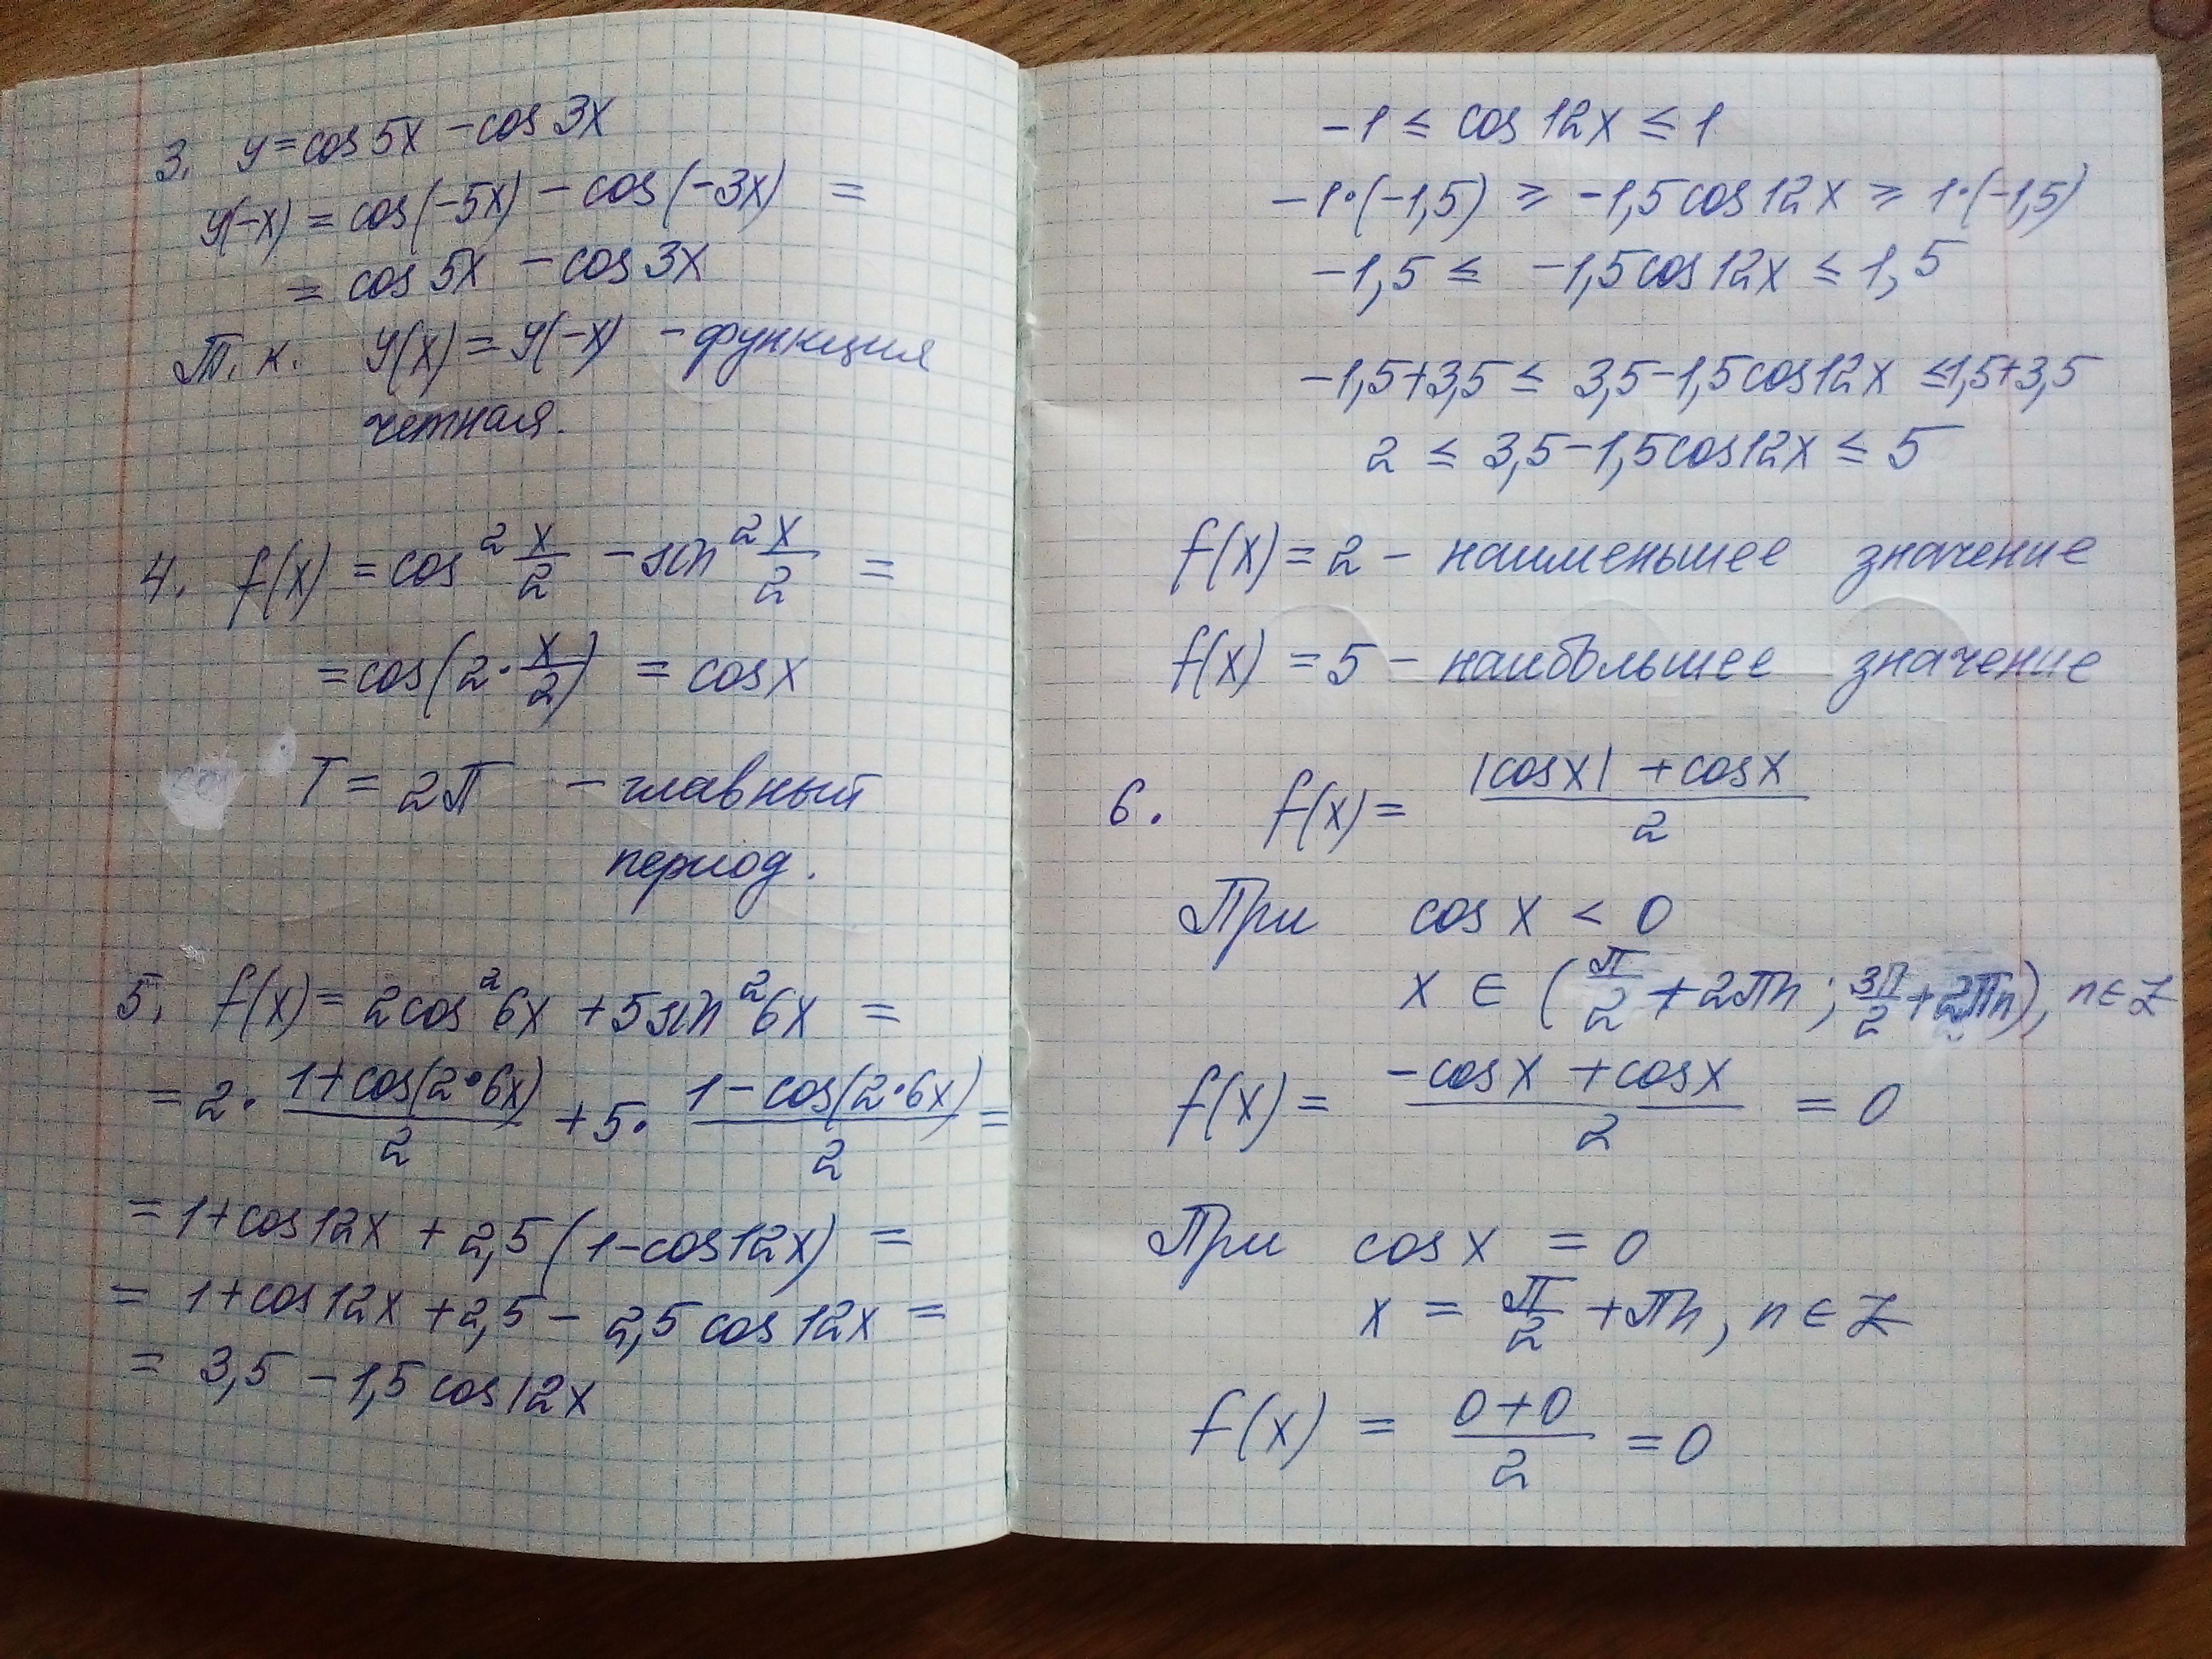 3. y = cos 5x - cos 3x
y(-x) = cos(-5x) - cos(-3x) =
= cos 5x - cos 3x
Т.к. y(x) = y(-x) - функция
четная.
4. f(x) = cos² x/2 - sin² x/2 =
= cos(2·x/2) = cos x
T = 2π - главный
период.
5. f(x) = 2cos²6x + 5sin²6x =
= 2· (1+cos(2·6x))/2 + 5· (1-cos(2·6x))/2 =
= 1+cos12x + 2,5(1-cos12x) =
= 1+cos12x + 2,5 - 2,5 cos12x =
= 3,5 - 1,5 cos12x
-1 ≤ cos 12x ≤ 1
-1·(-1,5) ≥ -1,5cos12x ≥ 1·(-1,5)
-1,5 ≤ -1,5cos12x ≤ 1,5
-1,5+3,5 ≤ 3,5-1,5cos12x ≤ 1,5+3,5
2 ≤ 3,5-1,5cos12x ≤ 5
f(x) = 2 - наименьшее значение
f(x) = 5 - наибольшее значение
6. f(x) = (|cosx| + cosx)/2
При cos x < 0
x ∈ (π/2 + 2πn; 3π/2 + 2πn), n∈Z
f(x) = (-cosx + cosx)/2 = 0
При cos x = 0
x = π/2 + πn, n∈Z
f(x) = (0+0)/2 = 0